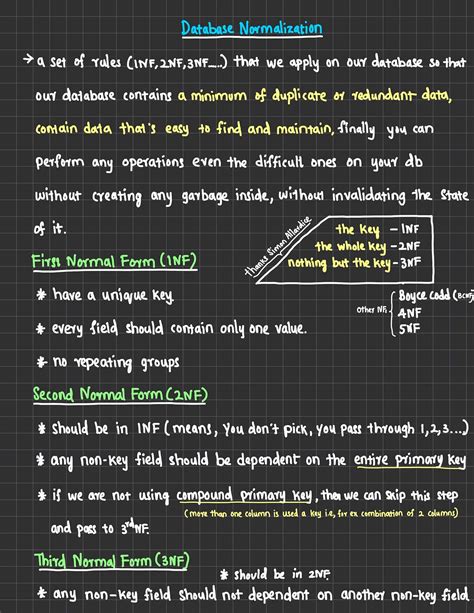 Database Normalization
→ a set of rules (1NF,2NF,3NF....) that we apply on our database so that
our database contains a minimum of duplicate or redundant data,
contain data that's easy to find and maintain, finally you can
perform any operations even the difficult ones on your db
without creating any garbage inside, without invalidating the state
of it.
thanks Simon Allardice
the key - 1NF
the whole key - 2NF
nothing but the key - 3NF
First Normal Form (1NF)
* have a unique key.
* every field should contain only one value.
* no repeating groups
Other NF.
Boyce codd (BCNF)
4NF
5NF
Second Normal Form (2NF)
* should be in 1NF (means, You don't pick, you pass through 1,2,3...)
* any non-key field should be dependent on the entire primary key
* if we are not using compound primary key, then we can skip this step
(more than one column is used a key i.e, for ex combination of 2 columns)
and pass to 3rd NF.
Third Normal Form (3NF)
* should be in 2NF.
* any non-key field should not dependent on another non-key field